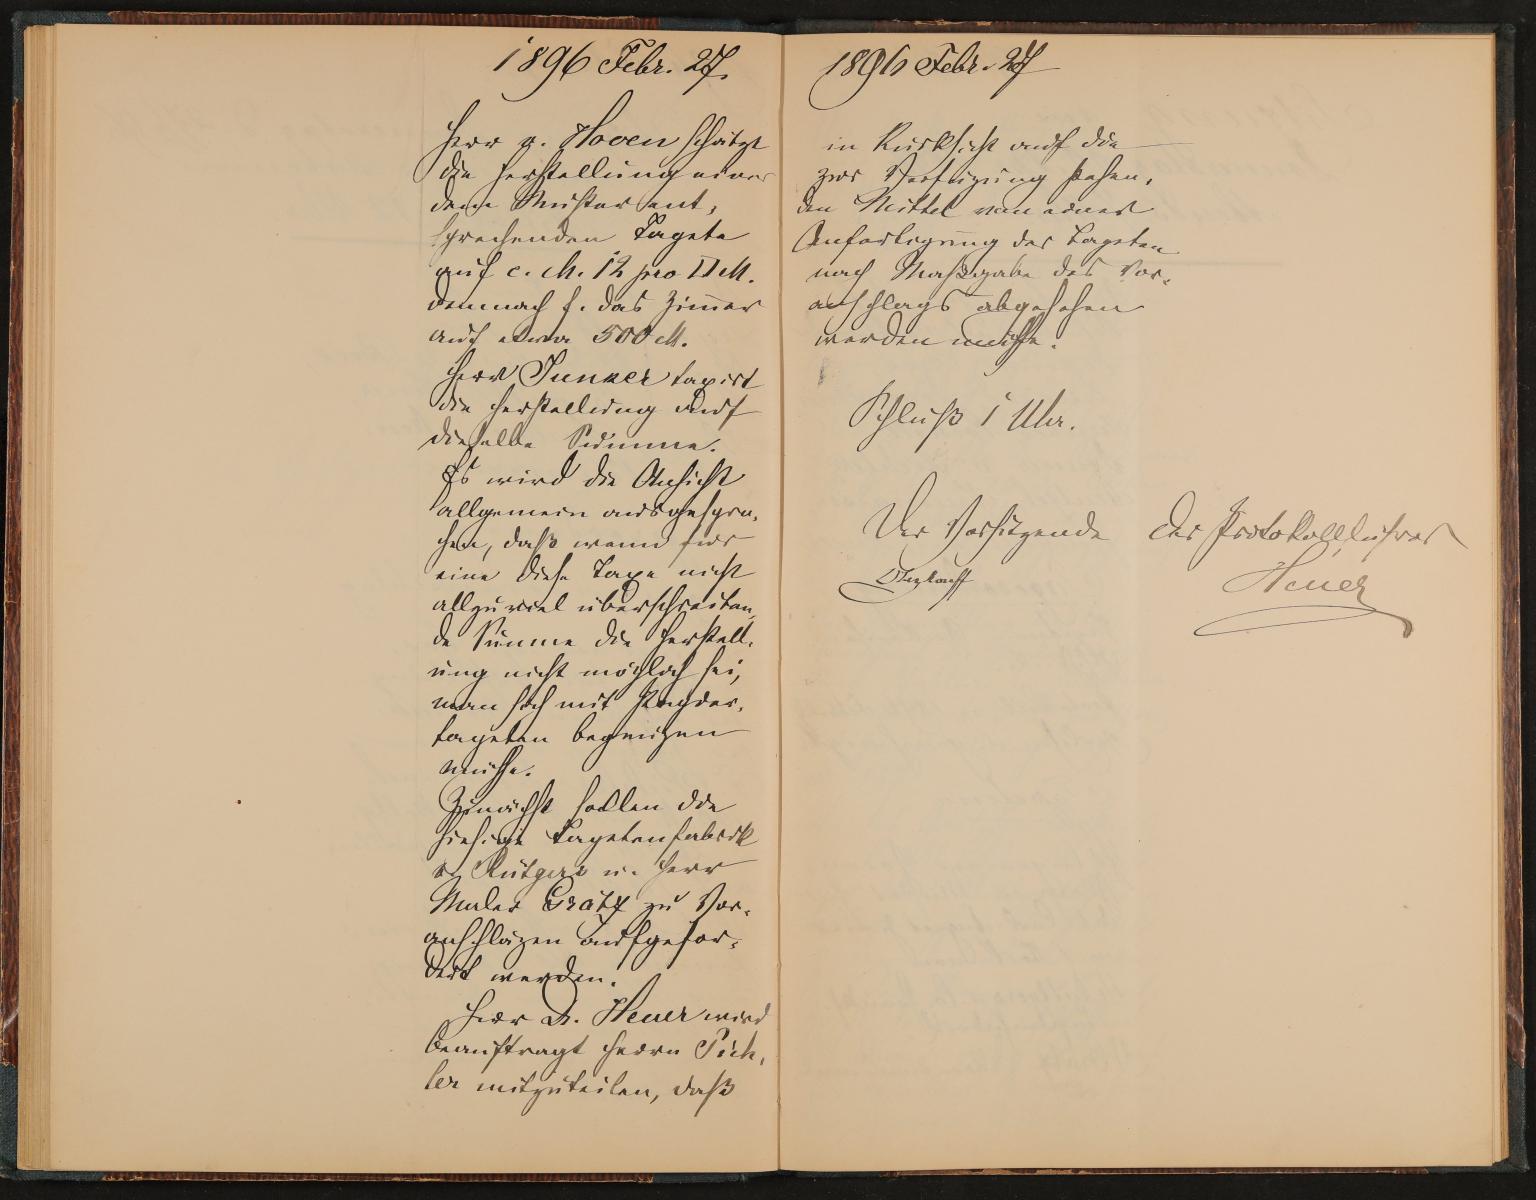 1896 Febr. 27.
Herr v. Hoven schätzt
die Herstellung einer
dem Muster ent-
sprechenden Tapete
auf c. M. 12 pro □ M.
demnach f. das Zimmer
auf etwa 500 M.
Herr Junker taxirt
die Herstellung auf
dieselbe Summe.
Es wird die Ansicht
allgemein ausgespro-
chen, daß wenn für
eine diese Taxe nicht
allzuviel überschreiten-
de Summe die Herstell-
ung nicht möglich sei,
man sich mit
tapeten begnügen
müsse.
Zunächst sollen die
hiesige Tapetenfabrik
v. Rütgers u. Herr
Maler Grätz zu Vor-
anschlägen aufgefor-
dert werden.
Herr Dr. Heuer wird
beauftragt Herrn Pich-
ler mitzuteilen, daß
1896 Febr. 27
in Rücksicht auf die
zur Verfügung stehen-
den Mittel von einer
Anfertigung der Tapeten
nach Maßgabe des Vor-
anschlags abgesehen
werden müsse.
Schluß 1 Uhr.
Der Vorsitzende Der Protokollführer
Heuer